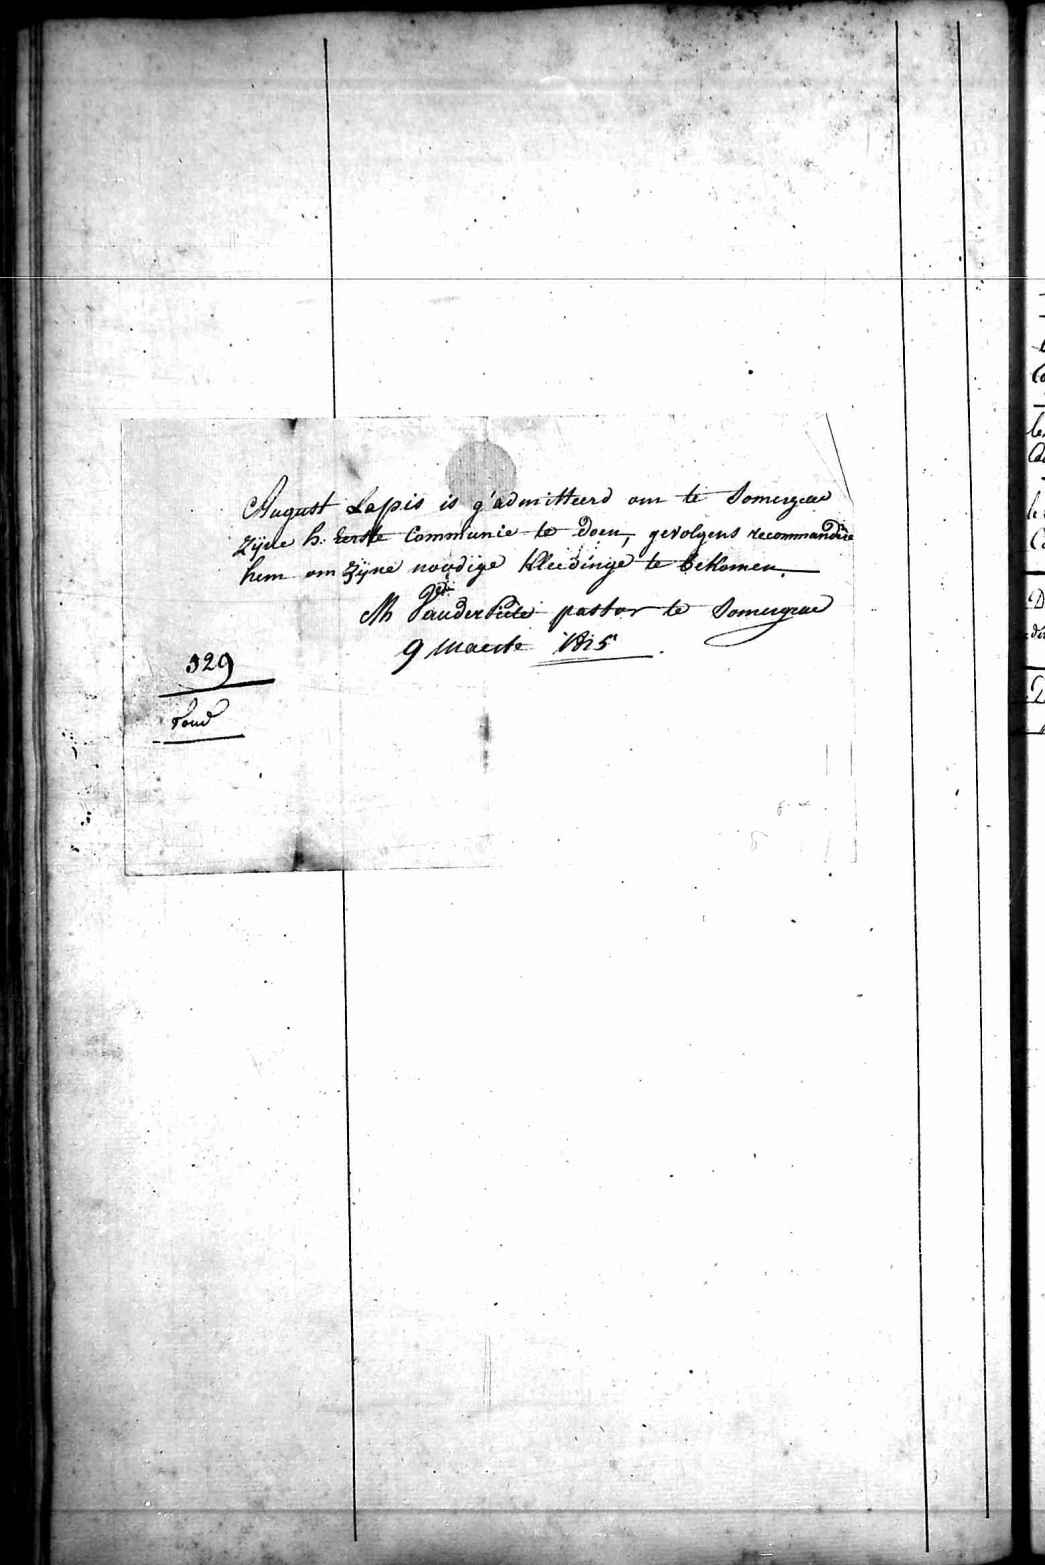 August Lapis is g'admitteerd om te Somergem
zijne h. Eerste Communie te doen, gevolgens recommandere
hem om zijne noodige kleedinge te bekomen.
Vander
pastor te Somergem
9 Maerte 1815
329